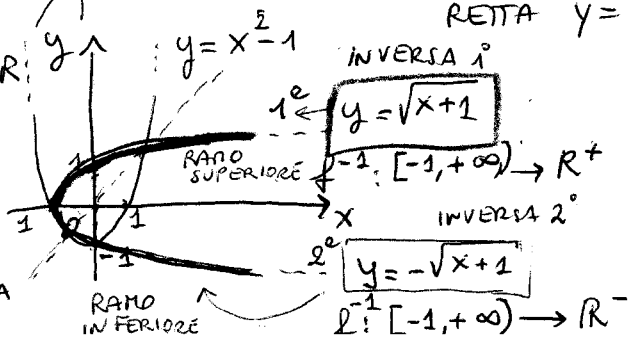 RETTA y =
y y = x²-1
R
INVERSA 1°
1ª y = √x+1
1
RAMO
SUPERIORE f⁻¹: [-1,+∞) → R⁺
1 0 1 x INVERSA 2°
-1
2ª y = -√x+1
A
RAMO
INFERIORE f⁻¹: [-1,+∞) → R⁻